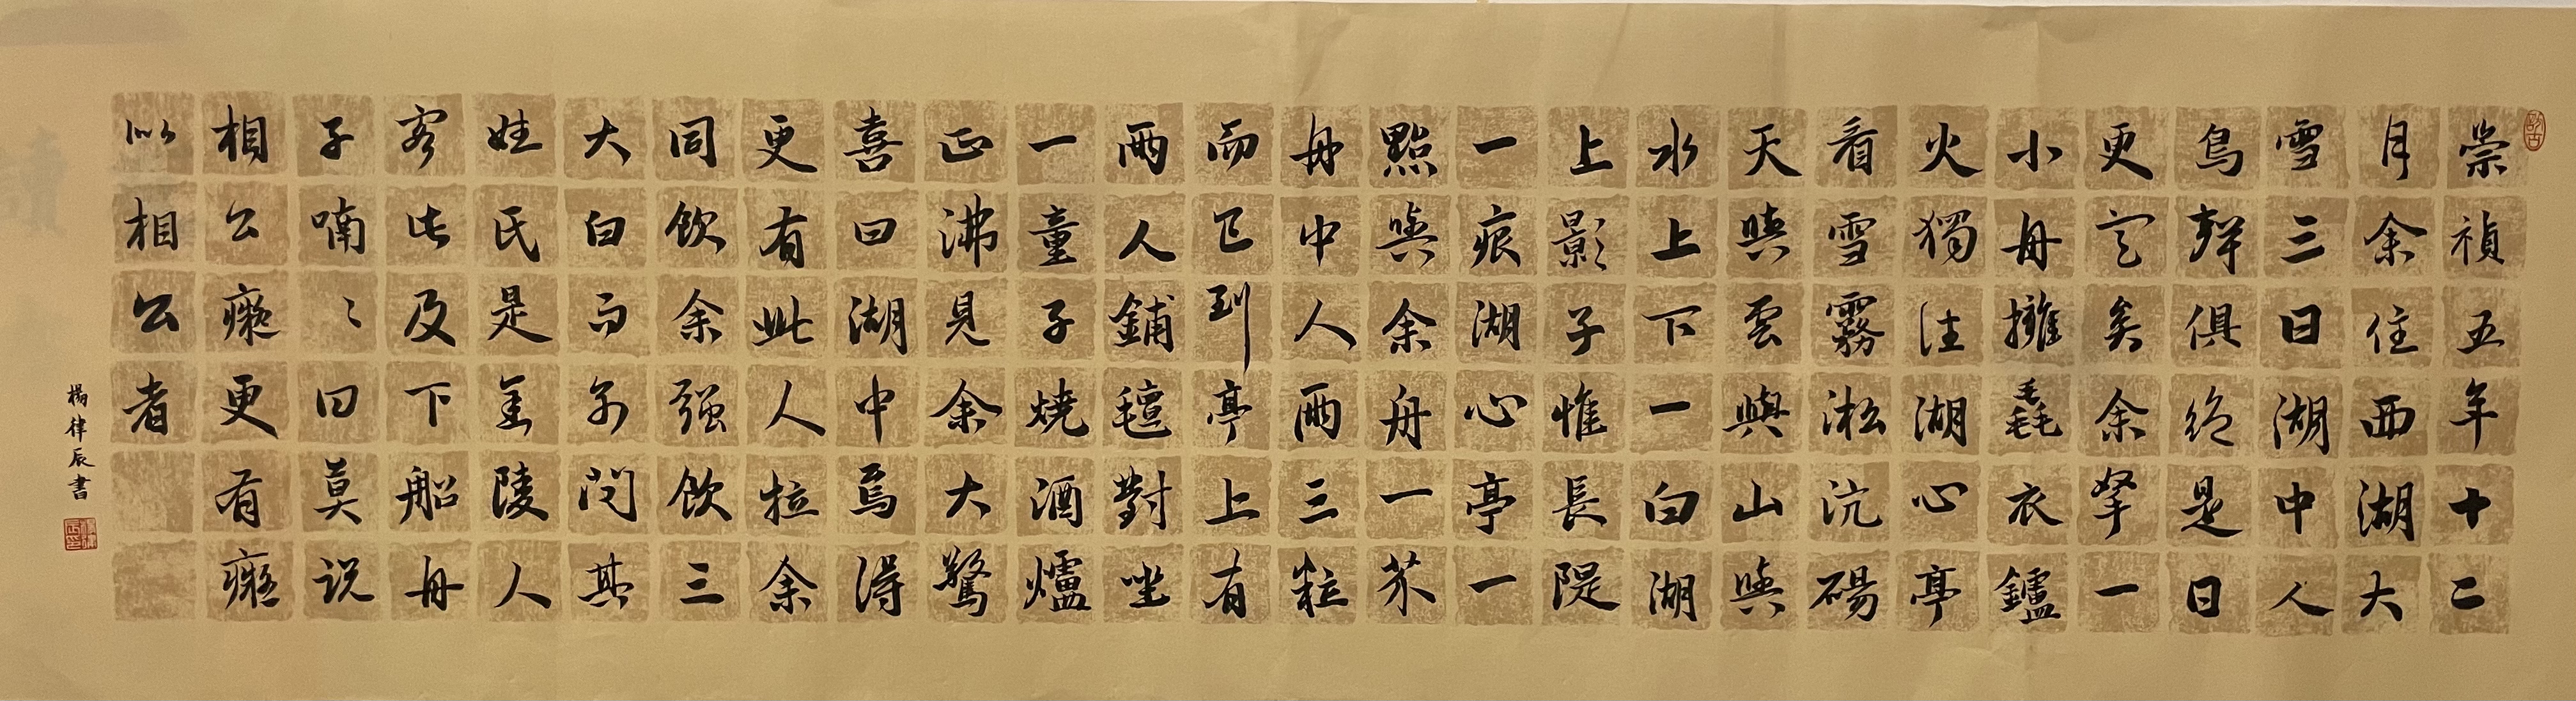 崇禎五年十二
月余住西湖大
雪三日湖中人
鳥聲俱絕是日
更定矣余拏一
小舟擁毳衣鑪
火獨往湖心亭
看雪霧淞沆碭
天與雲與山與
水上下一白湖
上影子惟長隄
一痕湖心亭一
點與余舟一芥
舟中人兩三粒
而已到亭上有
兩人鋪氈對坐
一童子燒酒爐
正沸見余大驚
喜曰湖中焉得
更有此人拉余
同飲余强飲三
大白而別問其
姓氏是金陵人
客此及下船舟
子喃々曰莫説
相公癡更有癡
似相公者
楊律辰書